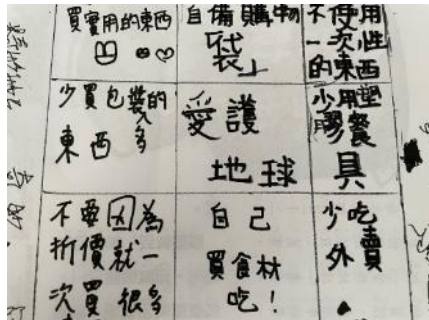 買實用的東西
自備購物
「袋」
不使用
一次性
的東西
少買包裝的
東西多
愛護
地球
少用塑
膠餐
具
不要因為
折價就一
次買很多
自己
買食材
吃！
少吃
外賣